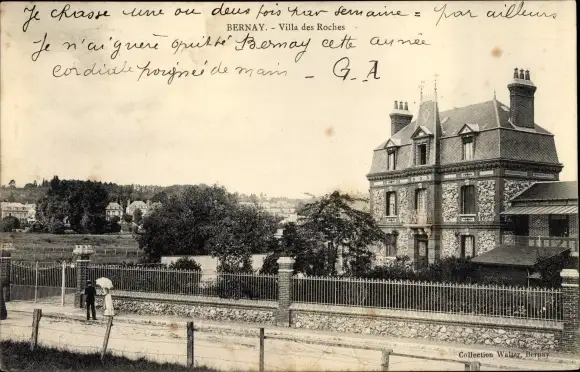 Je chasse une ou deux fois par semaine = par ailleurs
BERNAY. - Villa des Roches
Je n'ai guère quitté Bernay cette année
cordiale poignée de main - G.A
Collection Walter, Bernay